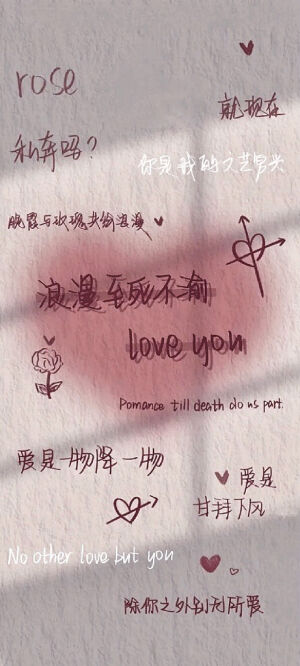 rose
就现在
私奔吗?
你是我的文艺复兴
晚霞与玫瑰共赴浪漫
浪漫至死不渝
love you
Pomance till death do us part.
爱是一物降一物
爱是
甘拜下风
No other love but you
除你之外别无所爱